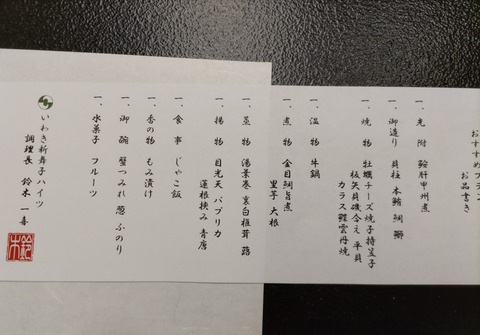 おすすめプラン
お品書き
一、先附 鮟肝甲州煮
一、御造り 貝柱 本鮪 鯛 鰤
一、焼物 牡蠣チーズ焼 子持笠子
板矢貝磯合え 平貝
カラス鰈雲丹焼
一、温物 牛鍋
一、煮物 金目鯛旨煮
里芋 大根
一、蒸物 湯葉巻 裏白椎茸 蕗
一、揚物 目光天 パプリカ
蓮根挟み 青唐
一、食事 じゃこ飯
一、香の物 もみ漬け
一、御椀 蟹つみれ 葱 ふのり
一、水菓子 フルーツ
いわき新舞子ハイツ
調理長 鈴木一喜
鈴木